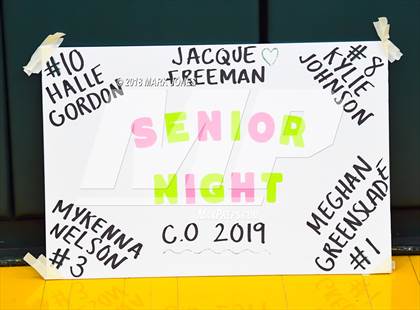 #10
HALLE
GORDON
JACQUE ♡
FREEMAN
#8
KYLIE
JOHNSON
© 2018 MARK JONES
SENIOR
NIGHT
C.O 2019
MYKENNA
NELSON
#3
MEGHAN
GREENSLADE
#1